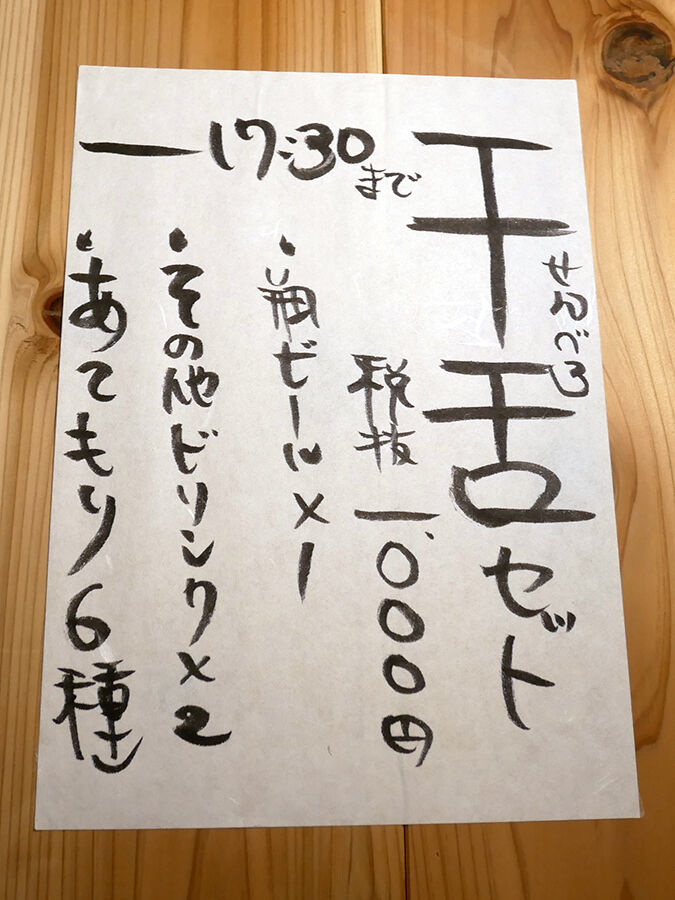 千舌セット
せんべろ
ー17:30まで
税抜一、000円
・瓶ビール×1
・その他ドリンク×2
・あてもり6種